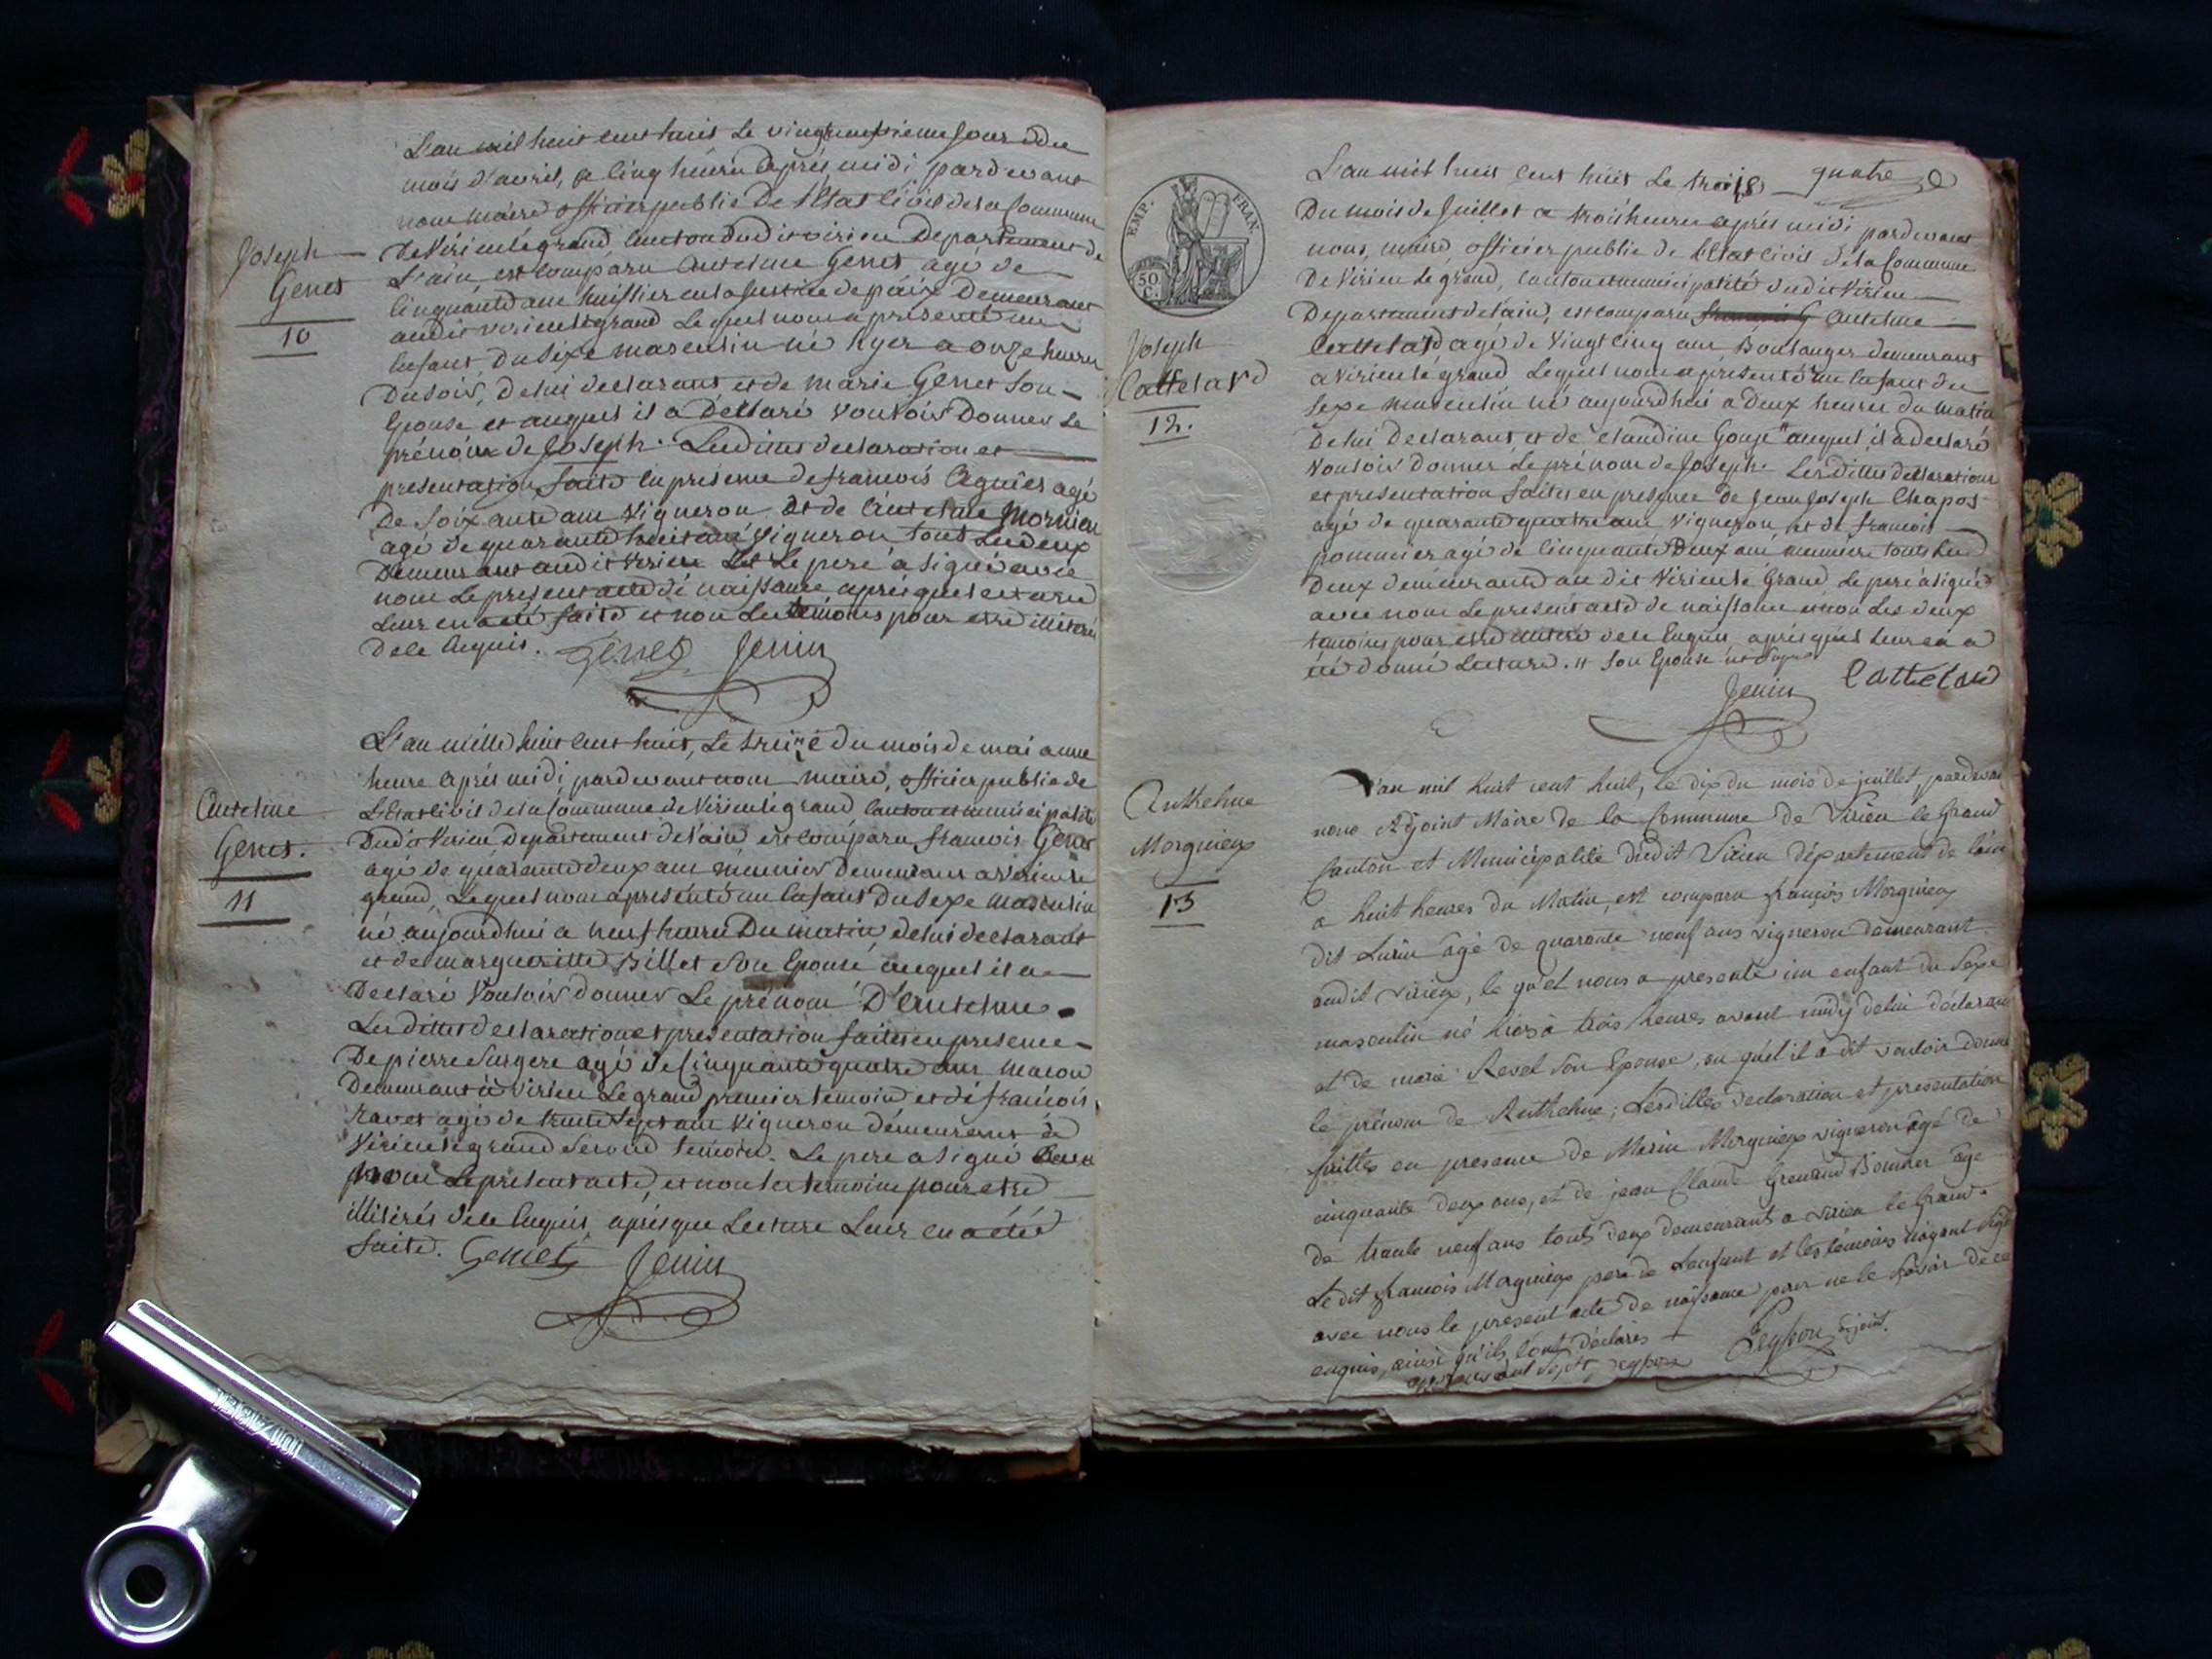 L'an mil huit cent huit Le vingt unsieme jour du
mois d'avril, a cinq heures après midi, pardevant
nous maire officier public De l'Etat Civil de la Commune
De Virieulegrand Canton dudit virieu Departement de
L'ain est comparu antelme Genet agé de
Joseph
Genet
10
Cinquante ans huissier en la justice de paix Demeurant
audit virieulegrand Lequel nous a presenté un
Enfant Du Sexe masculin né hyer a onze heures
Du soir, De lui declarant et de marie Genet Son
Epouse et auquel il a Déclaré vouloir Donner Le
prénom de Joseph. Lesdittes declaration et
presentation faite en présence de francois
De soixante ans Vigneron et de Antelme Mornieu
agé de quarante huit ans Vigneron tous Les deux
Demeurant audit Virieu Et Le pere a signé avec
nous Le present acte de naissance après que lecture
Leur en a été faite et non Les temoins pour etre illiterés
De le enquis. Genet Jenin
L'an mille huit cent huit, Le treize du mois de mai a une
heure après midi, pardevant nous maire, officier public de
Antelme
Genet.
11
L'Etat Civil de la Commune de Virieulegrand Canton et municipalité
Dudit Virieu Departement de l'ain est comparu francois Genet
agé de quarante deux ans meunier Demeurant a Virieu le
grand, Lequel nous a presenté un Enfant Du Sexe masculin
né aujourdhui a neuf heures Du matin, de lui declarant
et de margueritte Billet Son Epouse auquel il a
Declaré Vouloir donner Le prénom D'Antelme.
Les dittes declaration et presentation faites en presence
De pierre Surgere agé de Cinquante quatre ans macon
Demeurant à Virieu Le grand premier temoin et de francois
ravet agé de trente sept ans Vigneron démeurant à
Virieulegrand Second temoin. Le pere a signé avec
nous Le present acte, et non les temoins pour etre
illitérés de le Enquis, après que Lecture Leur en a été
faite. Genet Jenin
L'an mil huit Cent huit Le trois quatre
Du mois de Juillet a trois heures après midi pardevant
nous, maire, officier public de l'Etat civil de la Commune
De Virieu le grand, Canton et municipalité dudit Virieu
EMP. FRAN.
50 C.
Departement de l'ain, est comparu Antelme
Joseph
Cattelard
12.
Cattelard agé de Vingt cinq ans Boulanger demeurant
a Virieu le grand Lequel nous a presenté un Enfant du
Sexe masculin né aujourdhui a Deux heures du matin
De lui Declarant et de Claudine Gouje " auquel il a declaré
Vouloir donner Le prénom de Joseph. Les dittes declaration
et presentation faites en presence de Jean Joseph Chapot
agé de quarante quatre ans Vigneron, et de francois
pommier agé de Cinquante Deux ans, tous les
Deux demeurant au dit Virieu le Grand, Le pere a signé
avec nous Le present acte de naissance et non Les deux
temoins pour etre de le Enquis, après que leur en a
été donné Lecture. " Son Epouse
Cattelard
Jenin
L'an mil huit cent huit, le dix du mois de juillet, pardevant
nous Adjoint Maire de la Commune de Virieu le Grand
Anthelme
Morgnieux
13
Canton et Municipalité dudit Virieu département de l'ain
a huit heures du Matin, est comparu françois Morgnieux
dit Lurin âgé de quarante neuf ans vigneron demeurant
audit Virieux, le quel nous a presenté un enfant du Sexe
masculin né hier à trois heures avant midy de lui déclarant
et de marie Revel Son Epouse, au quel il a dit vouloir donner
le prénom de Anthelme; Lesdittes declaration et presentation
faittes en presence de Marin Morgnieux vigneron âgé de
cinquante deux ans, et de jean Claude Grenaud Bourrier âgé
de trante neuf ans tout deux demeurant a Virieu le Grand
Le dit francois Morgnieux pere de L'enfant et les témoins n'ayant signé
avec nous le present acte de naissance pour ne le savoir de ce
enquis, ainsi qu'ils l'ont déclarés
Peysson adjoint.